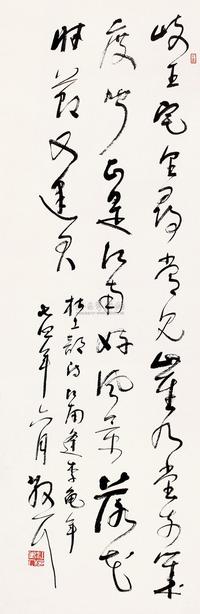 岐王宅里寻常见崔九堂前几
度闻正是江南好风景落花
时节又逢君
杜工部诗江南逢李龟年
七四年六月 散之